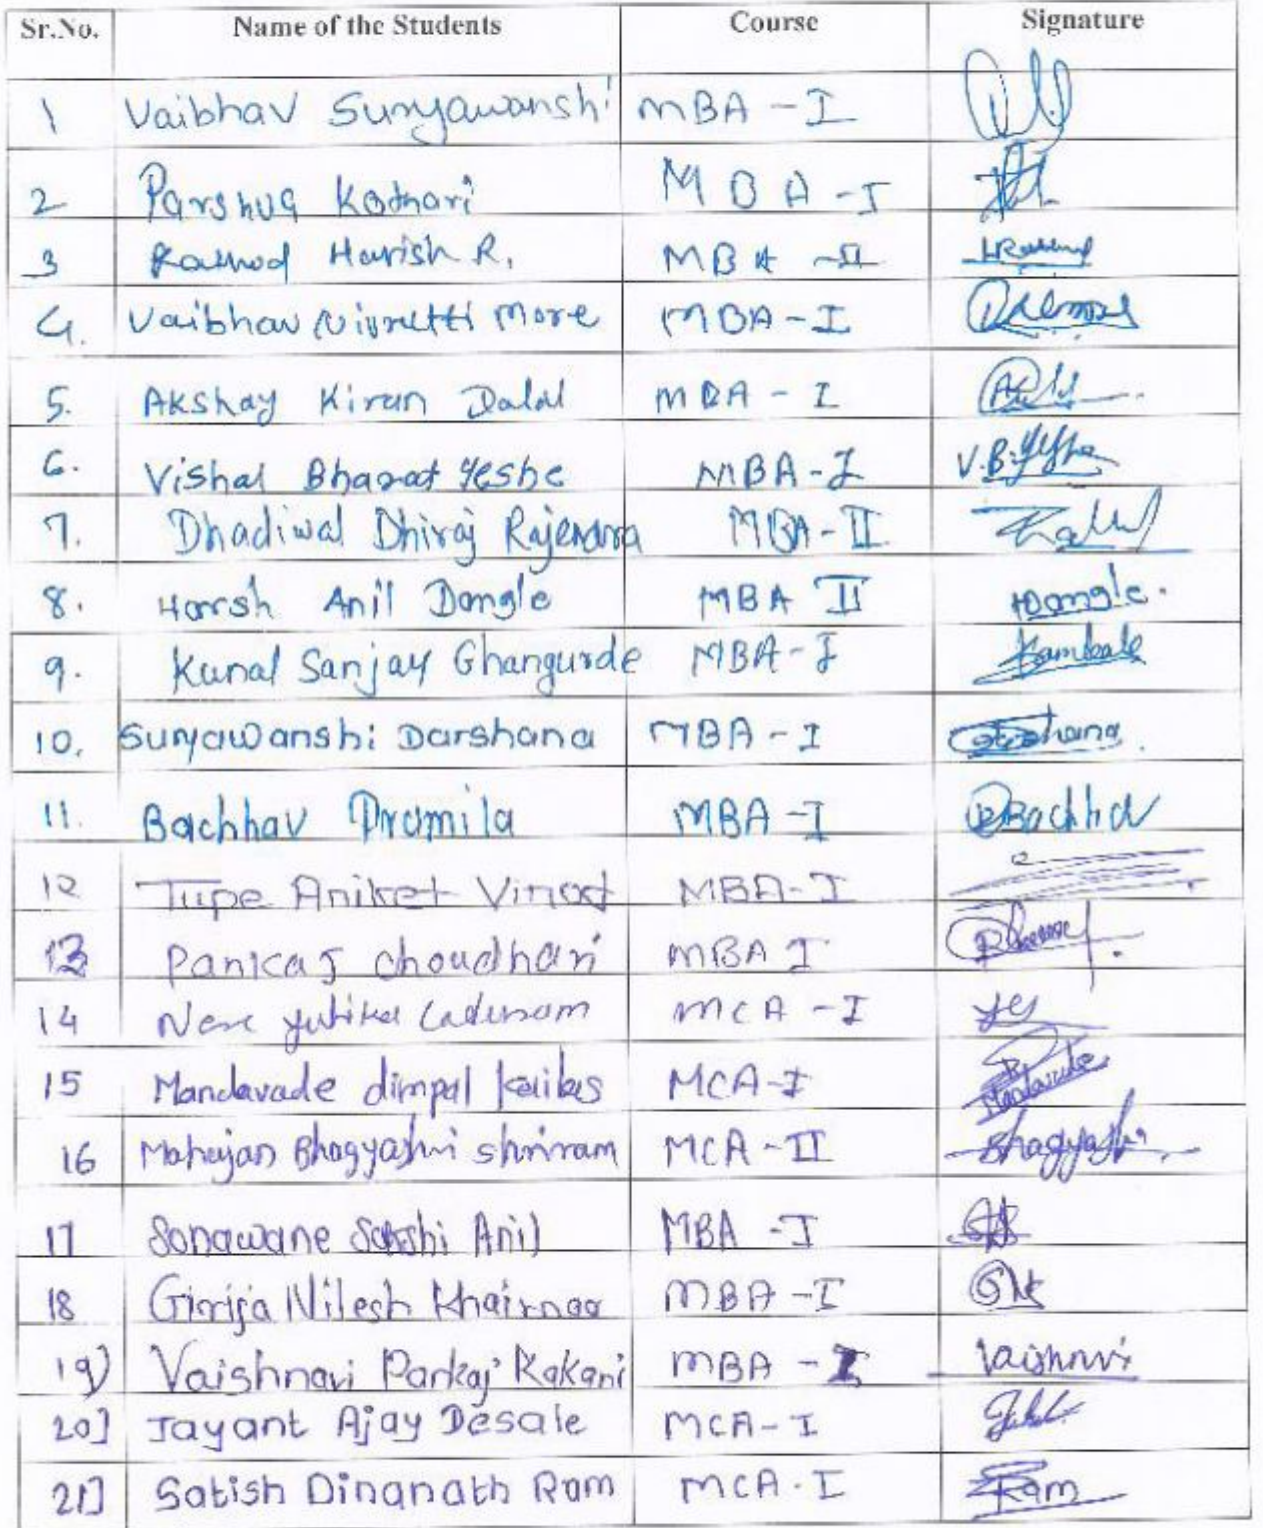 Sr.No. Name of the Students Course Signature
1 Vaibhav Suryawanshi MBA - I
2 Parshva Kothari MBA - I
3 Rathod Harish R. MBA - II
4. Vaibhav Nivrutti More MBA - I
5. Akshay Kiran Dalal MBA - I
6. Vishal Bharat Yeshe MBA - I V.B.Yeshe
7. Dhadiwal Dhiraj Rajendra MBA - II
8. Harsh Anil Dangle MBA II HDangle.
9. Kunal Sanjay Ghangurde MBA - I Kambale
10. Suryawanshi Darshana MBA - I
11. Bachhav Pramila MBA - I PBachhav
12 Tupe Aniket Vinod MBA - I
13 Pankaj Choudhari MBA I
14 Nere Yutika MCA - I
15 Mandavade dimpal kailas MCA - I Mandavade
16 Mahajan Bhagyashri shriram MCA - II Bhagyashri
17 Sonawane Sakshi Anil MBA - I
18 Girija Nilesh Khairnar MBA - I GNK
19) Vaishnavi Pankaj Kakani MBA - I Vaishnavi
20] Jayant Ajay Desale MCA - I
21] Satish Dinanath Ram MCA - I Ram